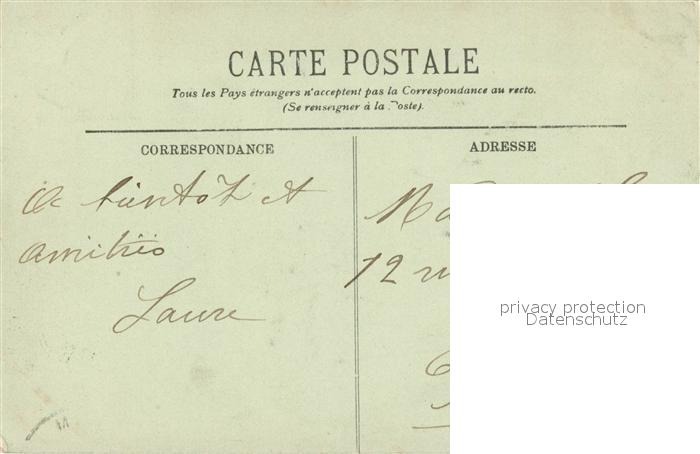 CARTE POSTALE
Tous les Pays étrangers n'acceptent pas la Correspondance au recto.
(Se renseigner à la Poste).
CORRESPONDANCE
ADRESSE
A bientôt et
amitiés
Laure
12
privacy protection
Datenschutz